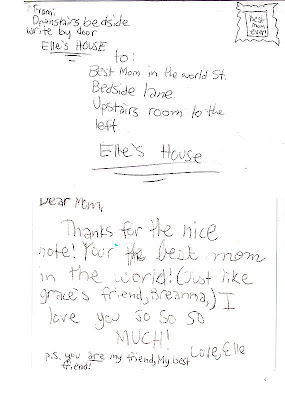 From:
Downstairs bedside
write by door
Elle's House
best
mom
ever!
to:
Best Mom in the world St.
Bedside lane
Upstairs room to the
left
Elle's House
Dear Mom,
Thanks for the nice
note! Your the best mom
in the world! (Just like
grace's friend, Breanna,) I
love you so so so
MUCH!
Love, Elle
p.s. you are my friend, My best
friend!